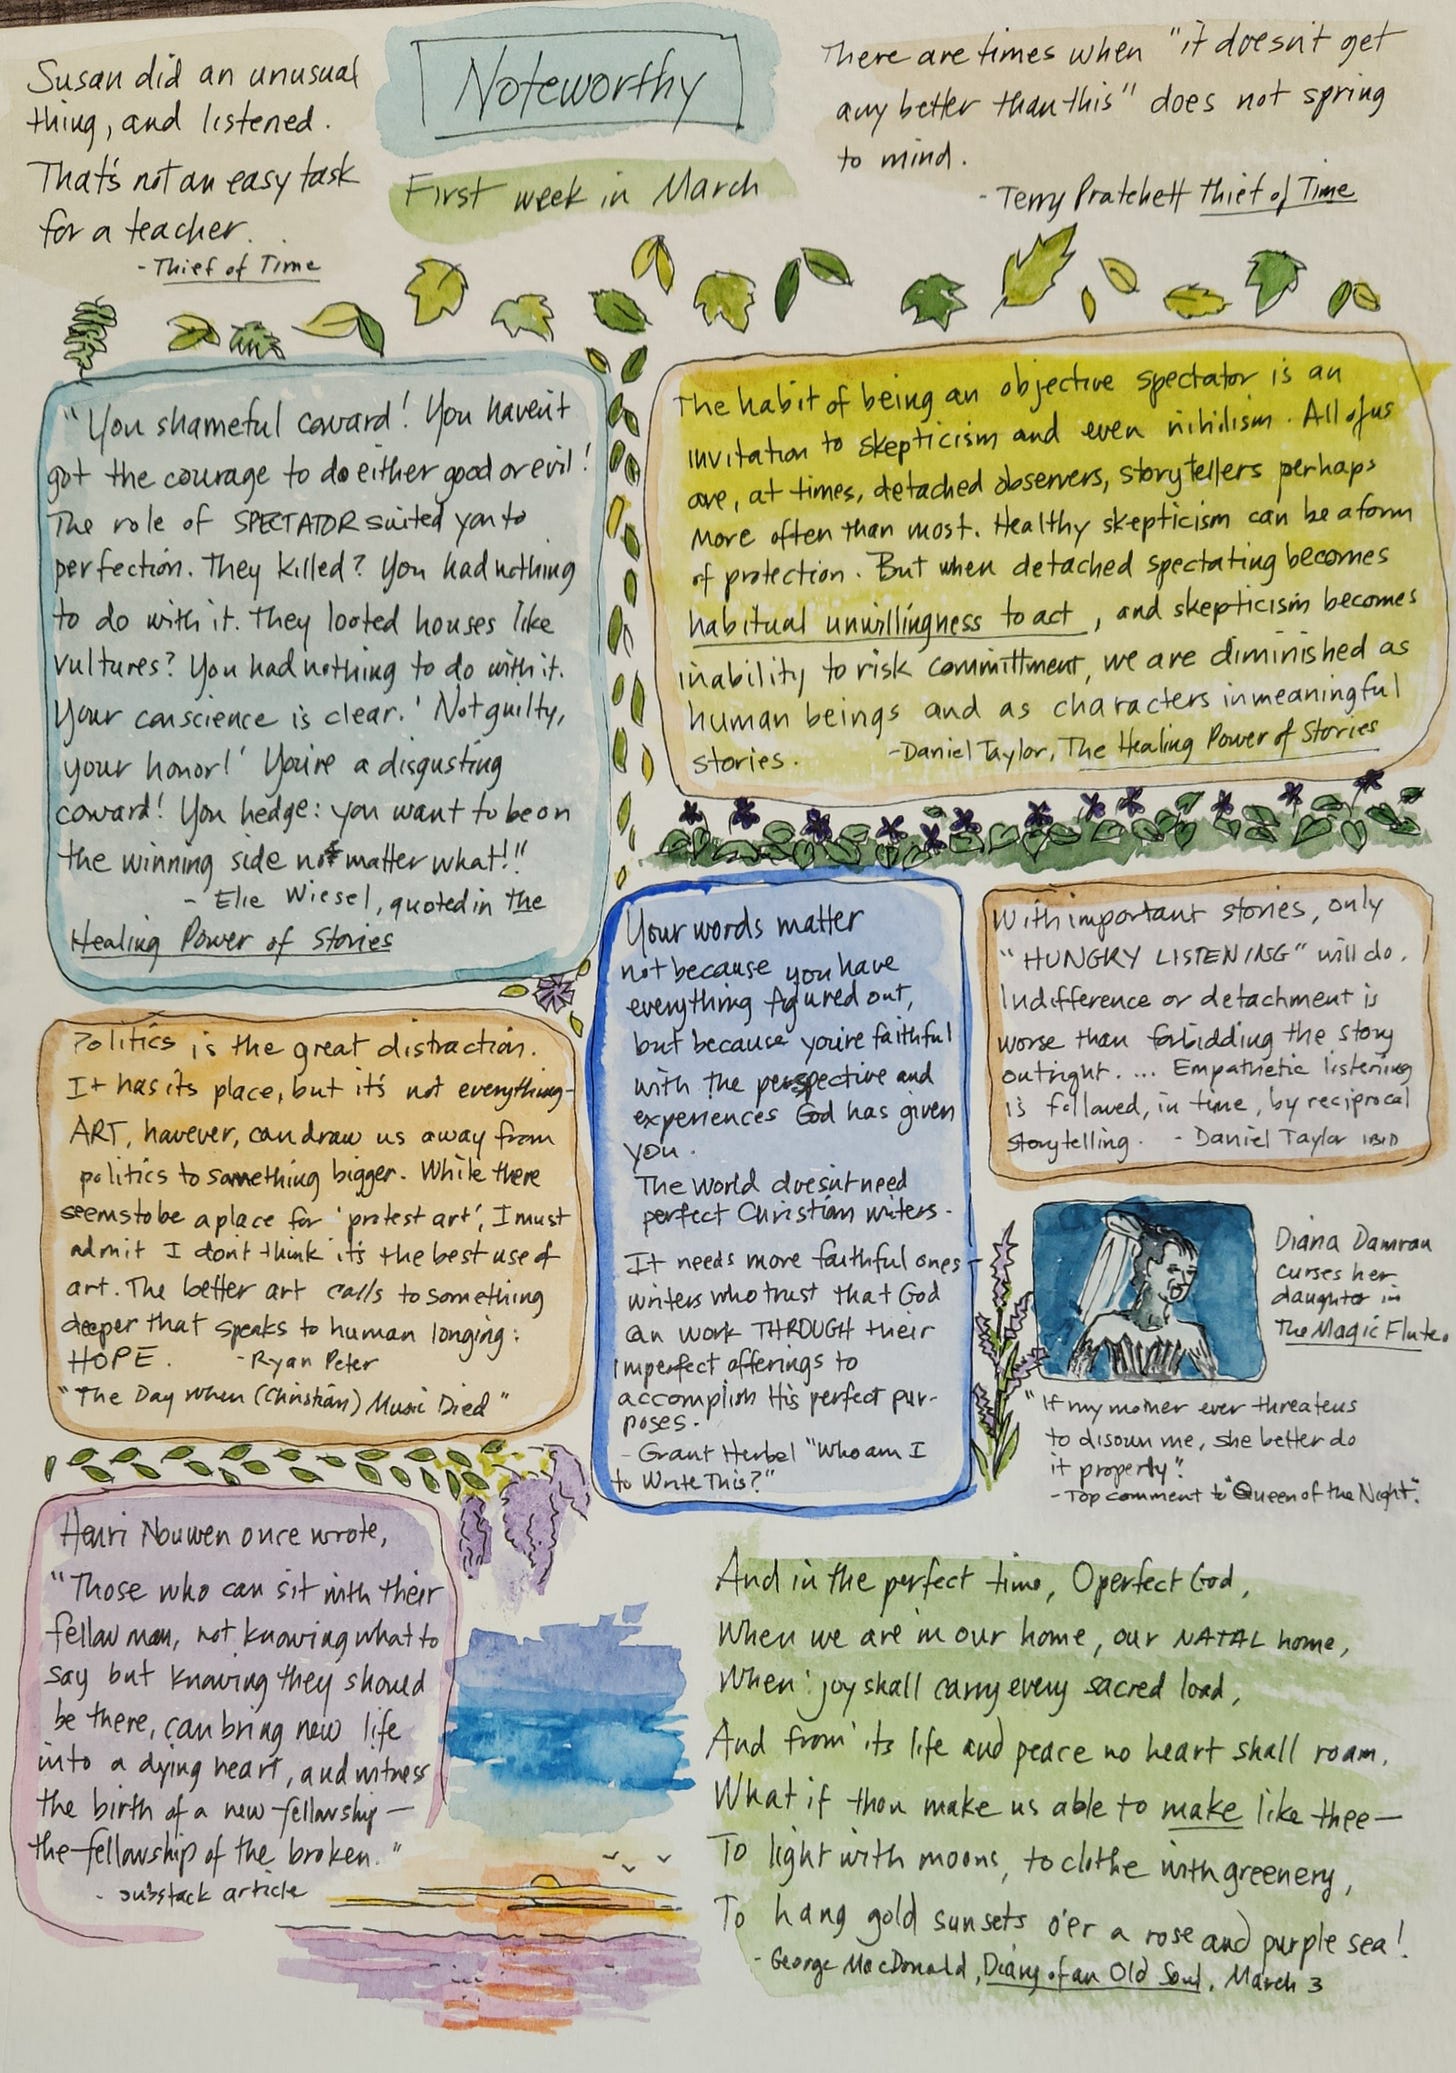 Susan did an unusual
thing, and listened.
That's not an easy task
for a teacher.
- Thief of Time
Noteworthy
First week in March
There are times when "it doesn't get
any better than this" does not spring
to mind.
- Terry Pratchett Thief of Time
"You shameful coward! You haven't
got the courage to do either good or evil!
The role of SPECTATOR suited you to
perfection. They killed? You had nothing
to do with it. They looted houses like
vultures? You had nothing to do with it.
Your conscience is clear. 'Not guilty,
your honor!' You're a disgusting
coward! You hedge: you want to be on
the winning side no matter what!"
- Elie Wiesel, quoted in the
Healing Power of Stories
The habit of being an objective spectator is an
invitation to skepticism and even nihilism. All of us
are, at times, detached observers, storytellers perhaps
more often than most. Healthy skepticism can be a form
of protection. But when detached spectating becomes
habitual unwillingness to act, and skepticism becomes
inability to risk committment, we are diminished as
human beings and as characters in meaningful
stories. - Daniel Taylor, The Healing Power of Stories
Politics is the great distraction.
It has its place, but it's not everything-
ART, however, can draw us away from
politics to something bigger. While there
seems to be a place for 'protest art', I must
admit I don't think it's the best use of
art. The better art calls to something
deeper that speaks to human longing:
HOPE. - Ryan Peter
"The Day When (Christian) Music Died"
Your words matter
not because you have
everything figured out,
but because you're faithful
with the perspective and
experiences God has given
you.
The world doesn't need
perfect Christian writers -
It needs more faithful ones -
writers who trust that God
can work THROUGH their
imperfect offerings to
accomplish His perfect pur-
poses.
- Grant Herbel "Who am I
to Write This?"
With important stories, only
"HUNGRY LISTENING" will do.
Indifference or detachment is
worse than forbidding the story
outright. ... Empathetic listening
is followed, in time, by reciprocal
storytelling. - Daniel Taylor IBID
Diana Damrau
curses her
daughter in
The Magic Flute.
"If my mother ever threatens
to disown me, she better do
it properly".
- Top comment to "Queen of the Night".
Henri Nouwen once wrote,
"Those who can sit with their
fellow man, not knowing what to
say but knowing they should
be there, can bring new life
into a dying heart, and witness
the birth of a new fellowship —
the fellowship of the broken."
- substack article
And in the perfect time, O perfect God,
When we are in our home, our NATAL home,
When joy shall carry every sacred load,
And from its life and peace no heart shall roam,
What if thou make us able to make like thee —
To light with moons, to clothe with greenery,
To hang gold sunsets o'er a rose and purple sea!
- George MacDonald, Diary of an Old Soul, March 3